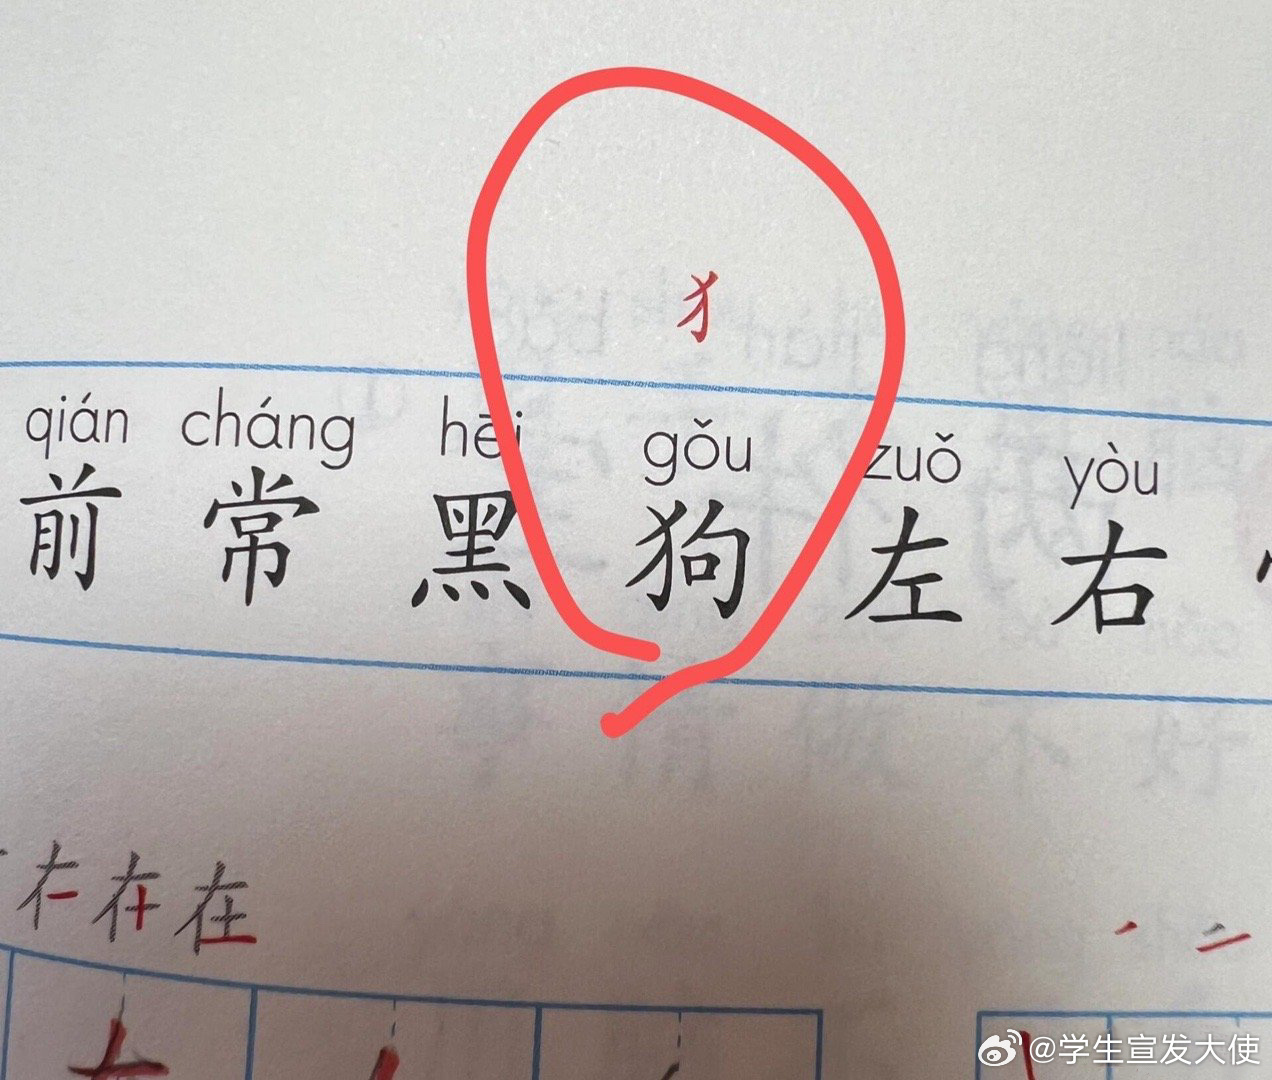 犭
qián cháng hēi gǒu zuǒ yòu
前 常 黑 狗 左 右
在
@学生宣发大使